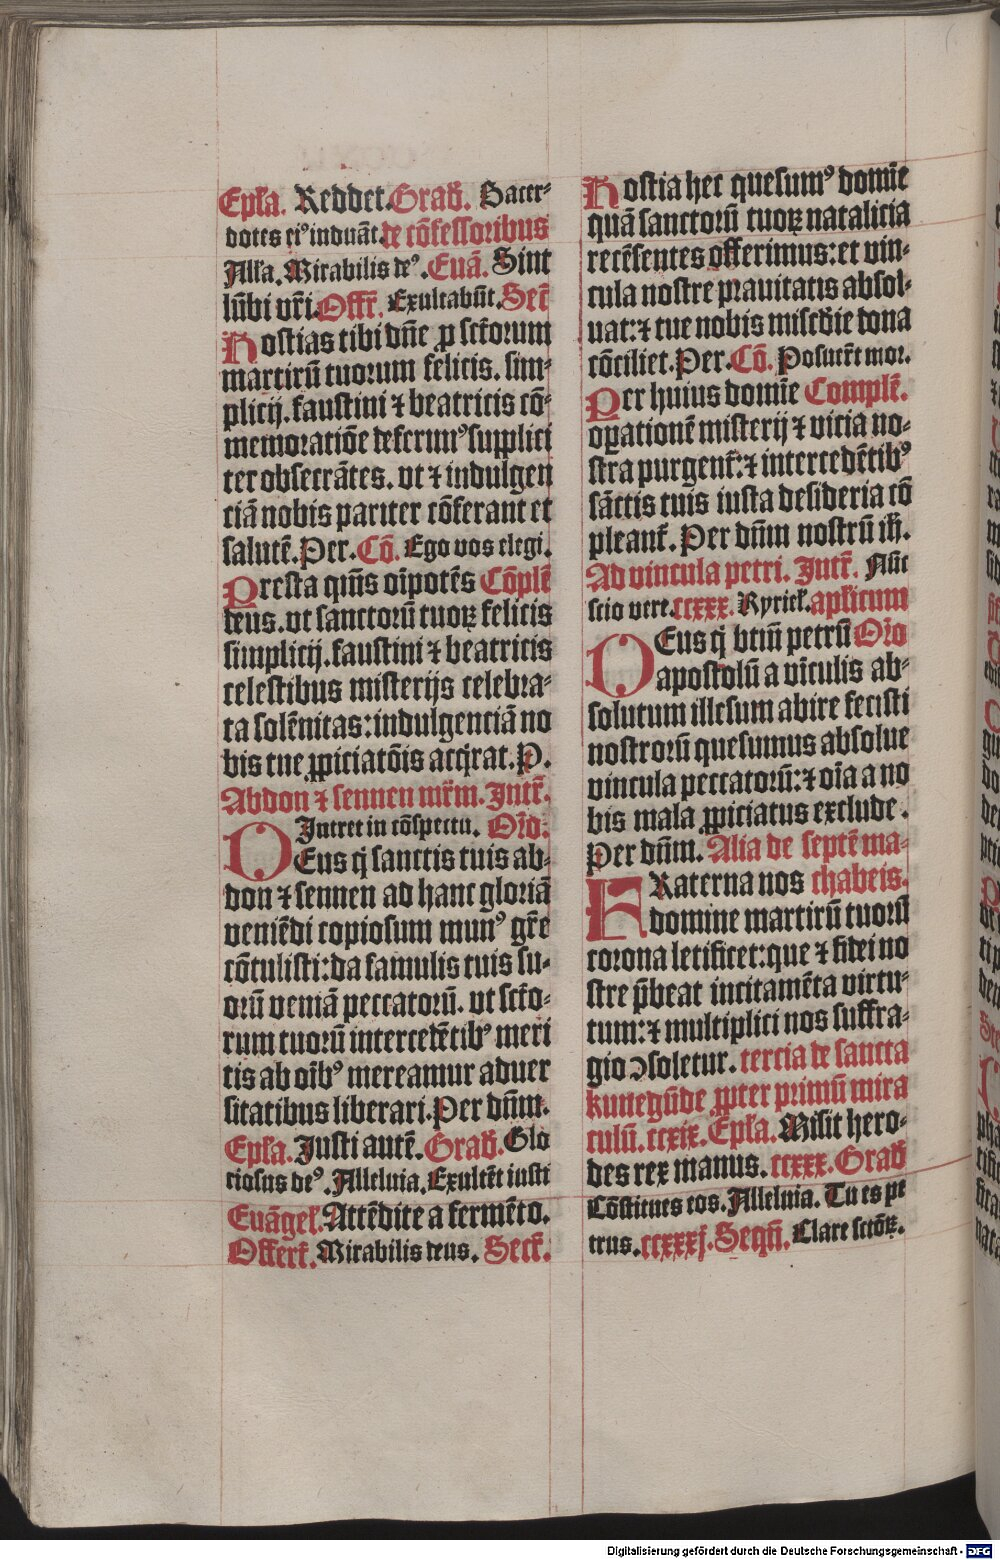 Epl̄a. Reddet. Grad̄. Sacer-
dotes eiꝰ induāt. de cōfessoribus
All'a. Mirabilis deꝰ. Euā. Sint
lūbi vr̄i. Offr̄. Exultabūt. Secr̄
Hostias tibi dn̄e ꝓ sctōrum
martirū tuorum felicis. sim-
plicij. faustini ⁊ beatricis cō-
memoratiōe deferimꝰ supplici
ter obsecrātes. vt ⁊ indulgen
ciā nobis pariter cōferant et
salutē. Per. Cō. Ego vos elegi.
Presta qm̄s oīpotēs Cōplē
deus. vt sanctorū tuoꝝ felicis
simplicij. faustini ⁊ beatricis
celestibus misterijs celebra-
ta solēnitas: indulgenciā no
bis tue ꝓpiciatōis acq̄rat. P.
Abdon ⁊ sennen mr̄m. Intr̄.
Intret in cōspectu. Orō:
Deus q̄ sanctis tuis ab-
don ⁊ sennen ad hanc gloriā
veniēdi copiosum munꝰ gr̄e
cōtulisti: da famulis tuis su-
orū veniā peccatorū. vt sctō-
rum tuorū intercedētibꝰ meri
tis ab oībꝰ mereamur aduer
sitatibus liberari. Per dn̄m.
Epl̄a. Justi autē. Grad̄. Glo
riosus deꝰ. Alleluia. Exultēt iusti
Euāgel̄. Attēdite a fermēto.
Offert̄. Mirabilis deus. Secr̄.
Hostia hec quesumꝰ domīe
quā sanctorū tuoꝝ natalicia
recēsentes offerimus: et vin-
cula nostre prauitatis absol-
uat: ⁊ tue nobis miscd̄ie dona
cōciliet. Per. Cō. Posuer̄t mor.
Per huius domīe Complē.
oꝑationē misterij ⁊ vicia no-
stra purgent̄: ⁊ intercedētibꝰ
sāctis tuis iusta desideria cō
pleant̄. Per dn̄m nostrū ih̄.
Ad vincula petri. Intr̄. Nūc
scio vere. ccxxx. Kyriel̄. apl̄icum
Deus q̄ btīm petrū Orō
apostolū a vīculis ab-
solutum illesum abire fecisti
nostrorū quesumus absolue
vincula peccatorū: ⁊ oīa a no
bis mala ꝓpiciatus exclude.
Per dn̄m. Alia de septē ma-
Fraterna nos chabeis.
domine martirū tuorū
corona letificet: que ⁊ fidei no
stre p̄beat incitamēta virtu-
tum: ⁊ multiplici nos suffra-
gio ↄsoletur. tercia de sancta
kunegūde ꝓpter primū mira
culū. ccxix. Epl̄a. Misit hero-
des rex manus. ccxxx. Grad̄
Cōstitues eos. Alleluia. Tu es pe
trus. ccxxxj. Seqn̄. Clare sctōꝝ.
Digitalisierung gefördert durch die Deutsche Forschungsgemeinschaft - DFG